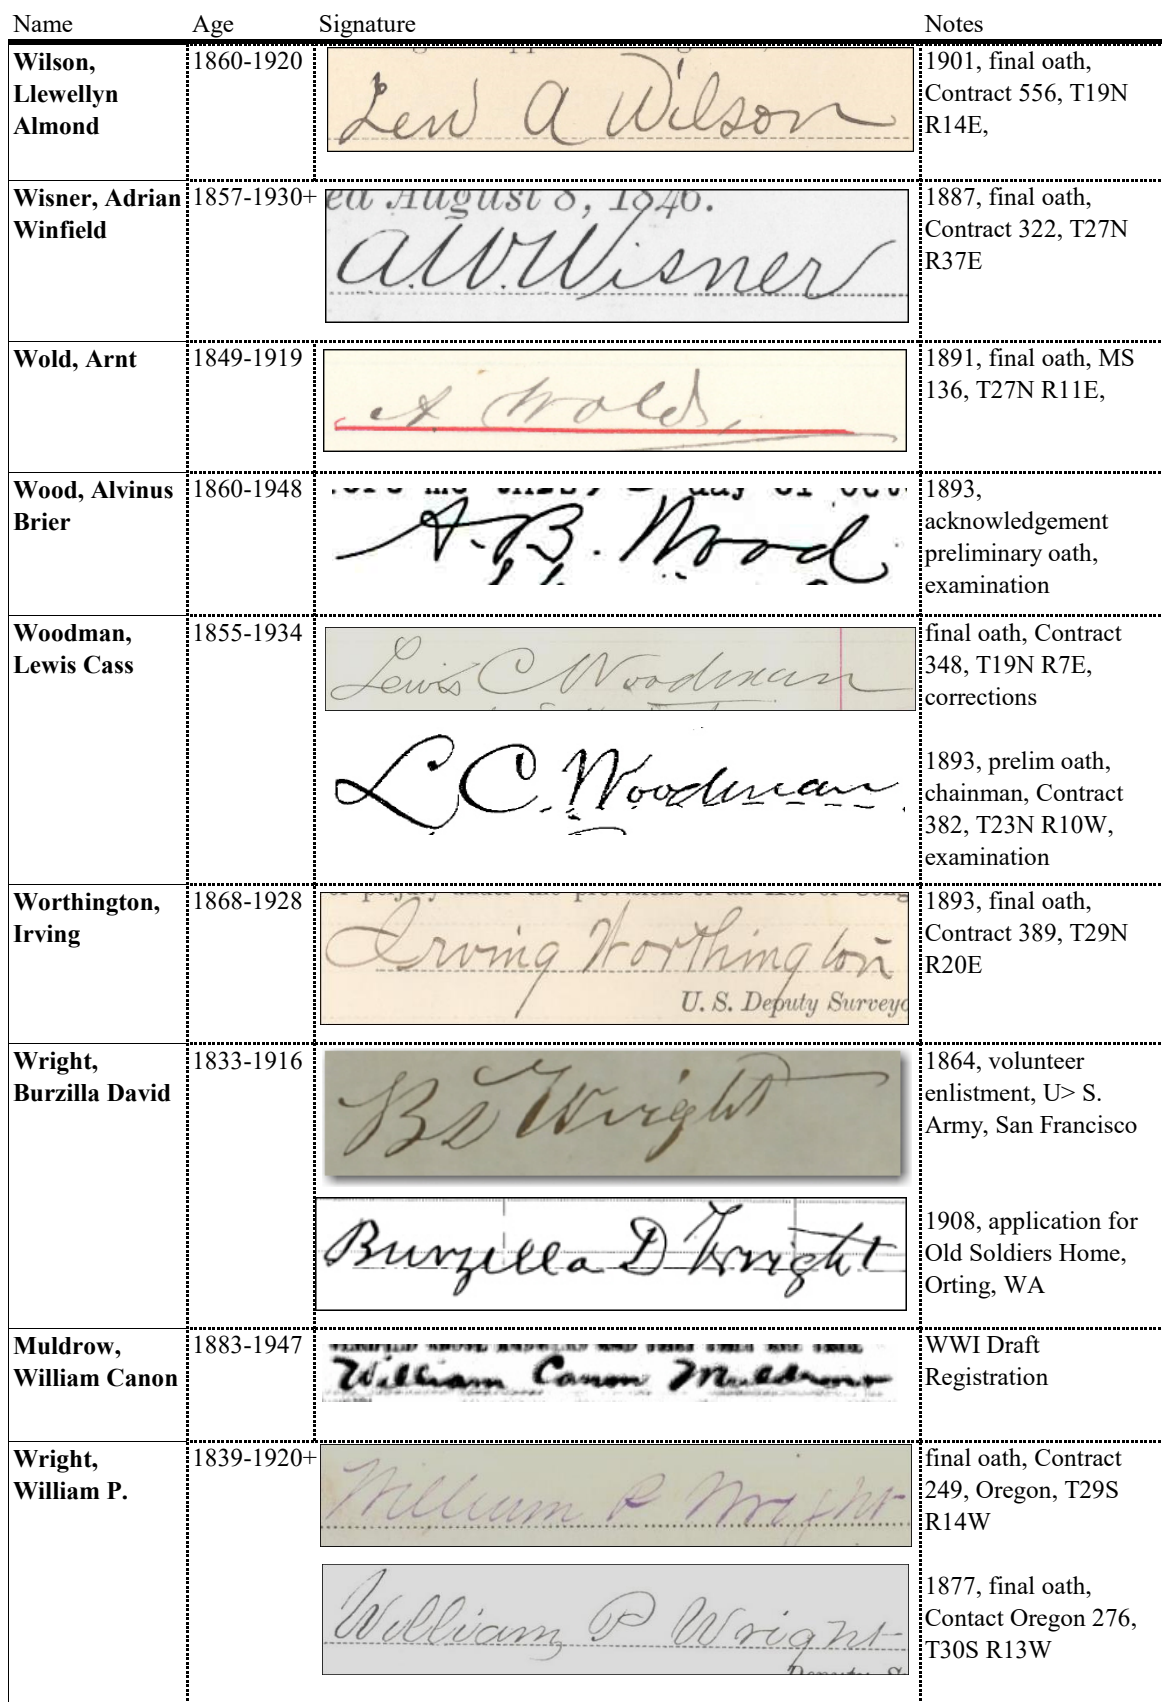 Name Age Signature Notes
Wilson, Llewellyn Almond 1860-1920
Lew A Wilson
1901, final oath, Contract 556, T19N R14E,
Wisner, Adrian Winfield 1857-1930+
ed August 8, 1846.
A.W. Wisner
1887, final oath, Contract 322, T27N R37E
Wold, Arnt 1849-1919
A. Wold
1891, final oath, MS 136, T27N R11E,
Wood, Alvinus Brier 1860-1948
day of
A. B. Wood
1893, acknowledgement preliminary oath, examination
Woodman, Lewis Cass 1855-1934
Lewis C Woodman
final oath, Contract 348, T19N R7E, corrections
L. C. Woodman
1893, prelim oath, chainman, Contract 382, T23N R10W, examination
Worthington, Irving 1868-1928
Irving Worthington
U. S. Deputy Surveyo
1893, final oath, Contract 389, T29N R20E
Wright, Burzilla David 1833-1916
B D Wright
1864, volunteer enlistment, U> S. Army, San Francisco
Burzilla D Wright
1908, application for Old Soldiers Home, Orting, WA
Muldrow, William Canon 1883-1947
William Canon Muldrow
WWI Draft Registration
Wright, William P. 1839-1920+
William P Wright
final oath, Contract 249, Oregon, T29S R14W
William P Wright
1877, final oath, Contact Oregon 276, T30S R13W